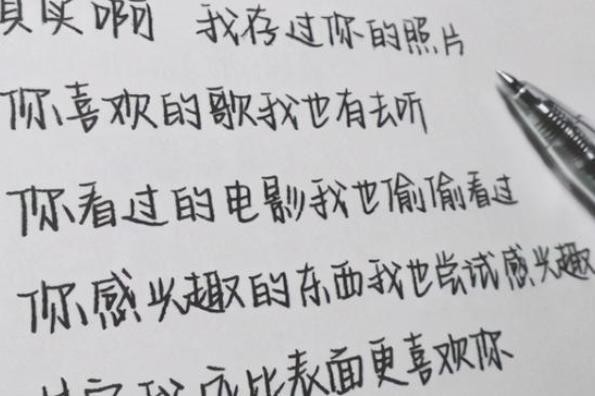 真实啊 我存过你的照片
你喜欢的歌我也有去听
你看过的电影我也偷偷看过
你感兴趣的东西我也尝试感兴趣
其实我应比表面更喜欢你